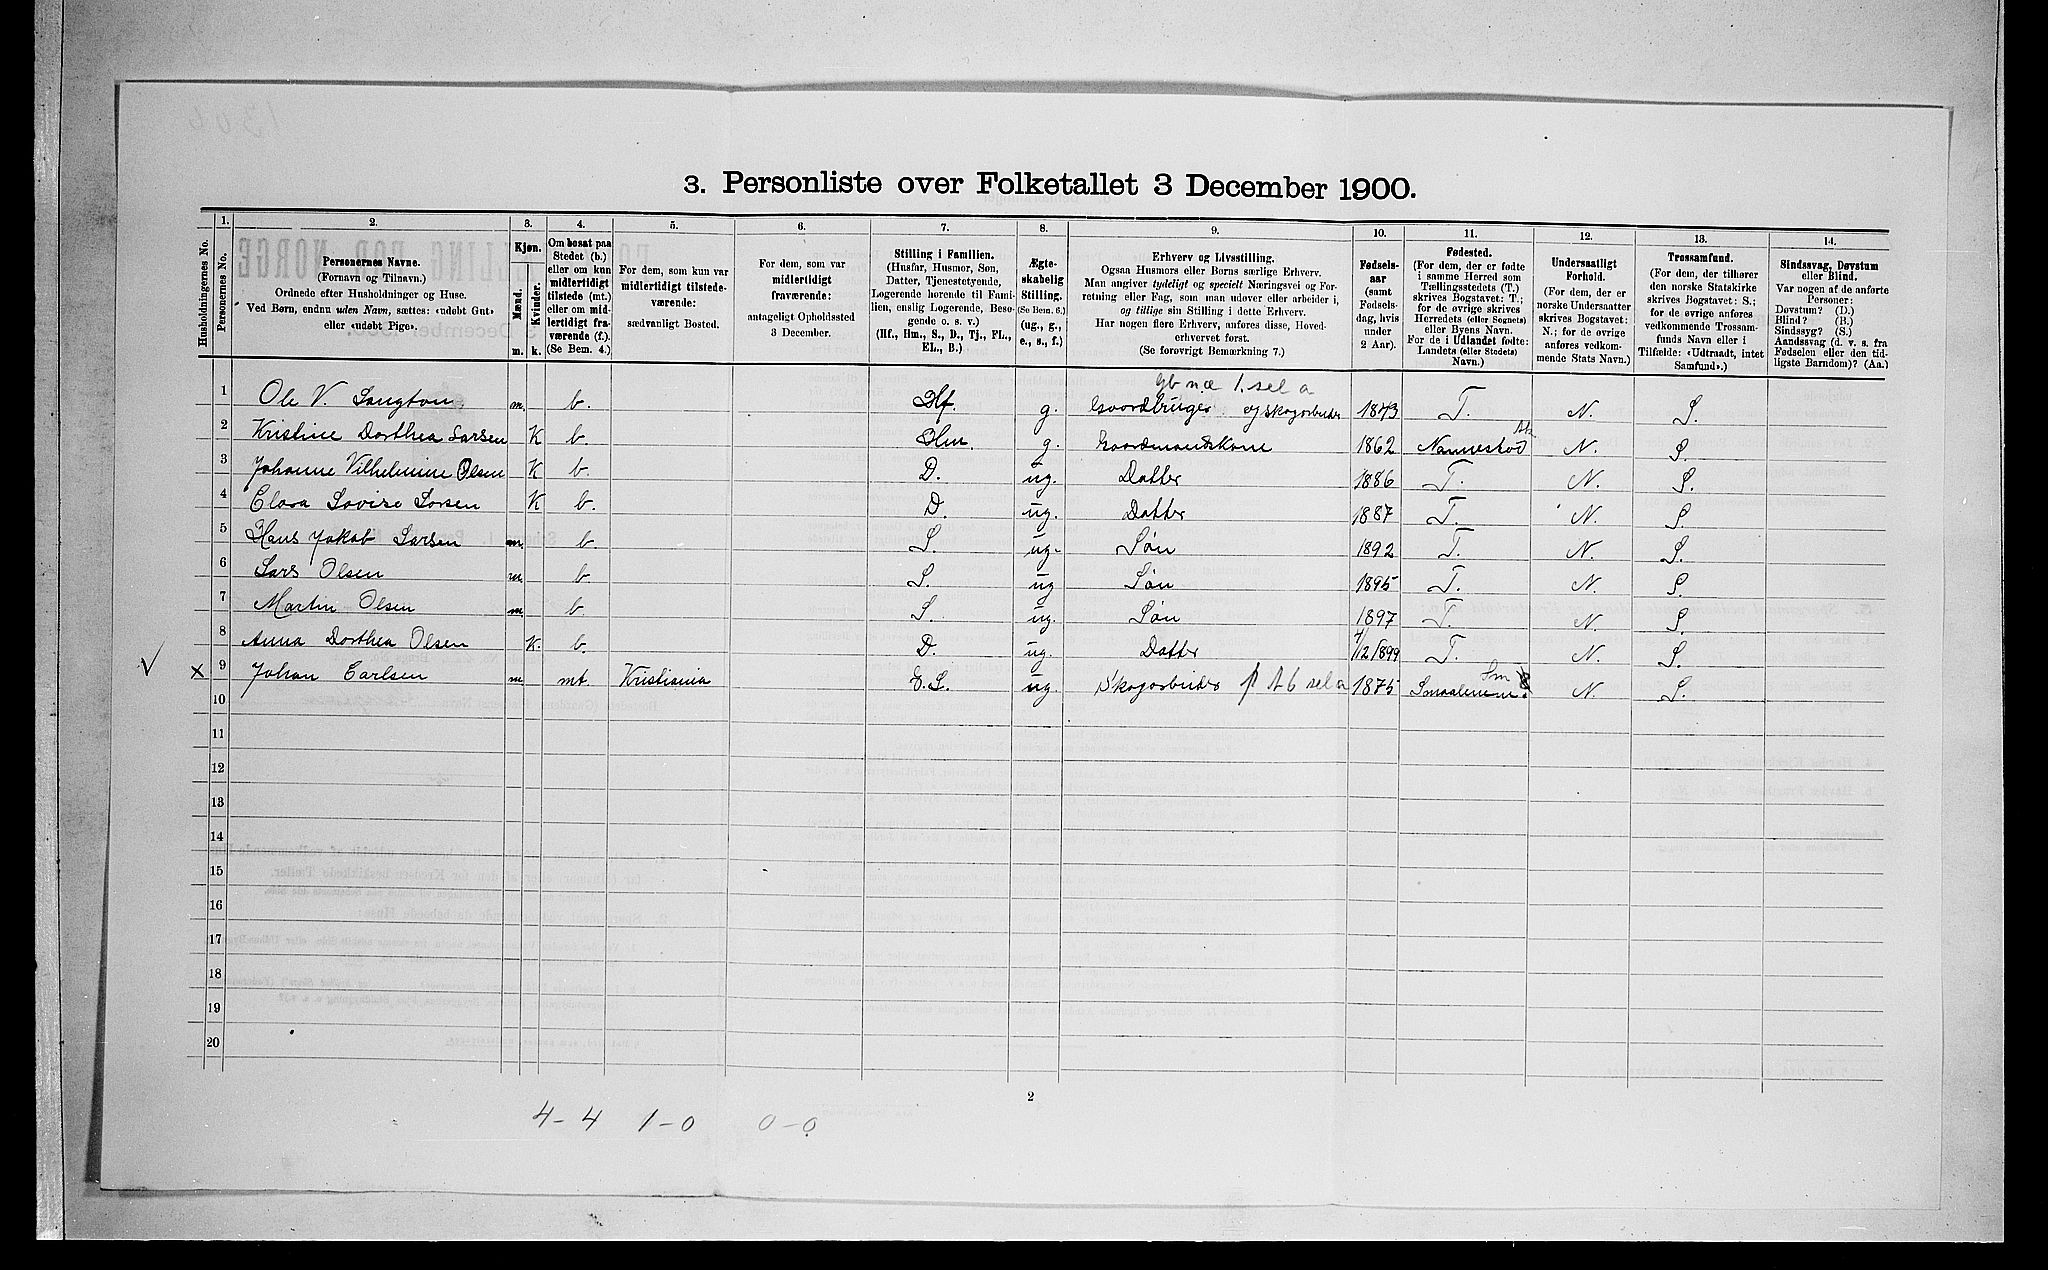 3. Personliste over Folketallet 3 December 1900.
1. 2. 3. 4. 5. 6. 7. 8. 9. 10. 11. 12. 13. 14.
Husholdningernes No.
Personernes No.
Personernes Navne.
(Fornavn og Tilnavn.)
Ordnede efter Husholdninger og Huse.
Ved Børn, endnu uden Navn, sættes: «udøbt Gut»
eller «udøbt Pige».
Kjøn.
Mænd. Kvinder.
m. k.
Om bosat paa
Stedet (b.)
eller om kun
midlertidigt
tilstede (mt.)
eller om mid-
lertidigt fra-
værende (f.).
(Se Bem. 4.)
For dem, som kun var
midlertidigt tilstede-
værende:
sædvanligt Bosted.
For dem, som var
midlertidigt
fraværende:
antageligt Opholdssted
3 December.
Stilling i Familien.
(Husfar, Husmor, Søn,
Datter, Tjenestetyende,
Logerende hørende til Fami-
lien, enslig Logerende, Besø-
gende o. s. v.)
(Hf., Hm., S., D., Tj., FL.,
EL., B.)
Ægte-
skabelig
Stilling.
(Se Bem. 6.)
(ug., g.,
e., s., f.)
Erhverv og Livsstilling.
Ogsaa Husmors eller Børns særlige Erhverv.
Man angiver tydeligt og specielt Næringsvei og For-
retning eller Fag, som man udøver eller arbeider i,
og tillige sin Stilling i dette Erhverv.
Har nogen flere Erhverv, anføres disse, Hoved-
erhvervet først.
(Se forøvrigt Bemærkning 7.)
Fødsels-
aar
(samt
Fødsels-
dag, hvis
under
2 Aar).
Fødested.
(For dem, der er fødte
i samme Herred som
Tællingsstedets (T.)
skrives Bogstavet: T.;
for de øvrige skrives
Herredets (eller Sognets)
eller Byens Navn.
For de i Udlandet fødte:
Landets (eller Stedets)
Navn.)
Undersaatligt
Forhold.
(For dem, der er
norske Undersaatter
skrives Bogstavet:
N.; for de øvrige
anføres vedkom-
mende Stats Navn.)
Trossamfund.
(For dem, der tilhører
den norske Statskirke
skrives Bogstavet: S.;
for de øvrige anføres
vedkommende Trossam-
funds Navn eller i
Tilfælde: «Udtraadt, intet
Samfund».)
Sindssvag, Døvstum
eller Blind.
Var nogen af de anførte
Personer:
Døvstum? (D.)
Blind? (B.)
Sindssyg? (S.)
Aandssvag (d. v. s. fra
Fødselen eller den tid-
ligste Barndom)? (Aa.)
gb næ 1. sel a
1 Ole V. Langton m. b. Hf. g. Gaardbruger og skogarbeider 1873 T. N. S.
2 Kristine Dorthea Larsen K b. Hm. g. Gaardmandskone 1862 Nannestad Ak. N. S.
3 Johanne Vilhelmine Olsen K b. D. ug. Datter 1886 T. N. S.
4 Clara Lovise Larsen K b. D. ug. Datter 1887 T. N. S.
5 Hans Jakob Larsen m. b. S. ug. Søn 1892 T. N. S.
6 Lars Olsen m. b. S. ug Søn 1895 T. N. S.
7 Martin Olsen m. b. S. ug. Søn 1897 T. N. S.
8 Anna Dorthea Olsen K. b. D. ug. Datter 4/12 1899 T. N. S.
9 x Johan Carlsen m mt. Kristiania E.L. ug. Skogarbeider sel a 1875 Smaalenene Sm N. S.
10
11
12
13
14
15
16
17
18
19
20
2
4-4 1-0 0-0